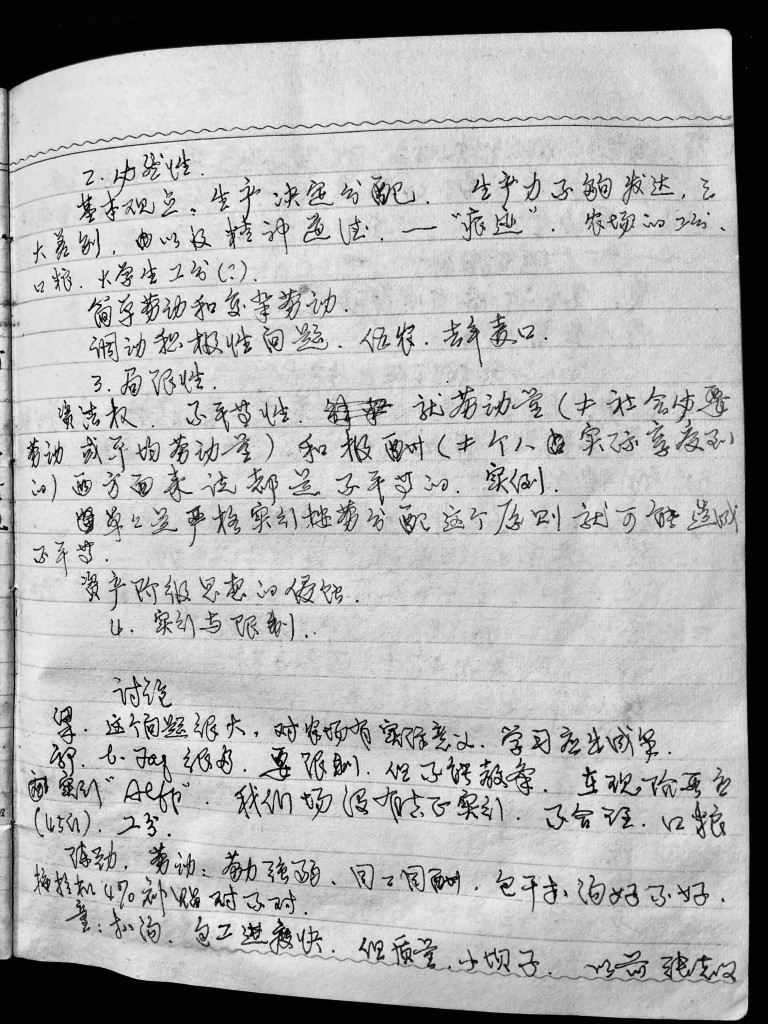 2. 必然性.
基本观点：生产决定分配. 生产力不够发达，三
大差别，以及精神道德. —"痕迹". 农场的工分.
口粮. 大学生工分(?).
简单劳动和复杂劳动.
调动积极性问题. 伍农.
3. 局限性.
资法权. 不平等性. 就劳动量(≠社会必要
劳动或平均劳动量)和报酬(≠个人实际享受到
的)两方面来说都是不平等的. 实例.
严格实行按劳分配这个原则就可能造成
不平等.
资产阶级思想的侵蚀.
4. 实行与限制.
讨论
这个问题很大，对农场有实际意义. 学习应出成果.
要限制. 但不能取消. 在现阶段要
实行. 我们场没有去实行. 不合理. 口粮
(45斤). 工分.
陈勁. 劳动：劳力强弱、同工同酬. 包干扒沟好不好.
拖拉机4%补贴对不对.
童：扒沟. 包工进度快. 但质量. 小坝子. 以前